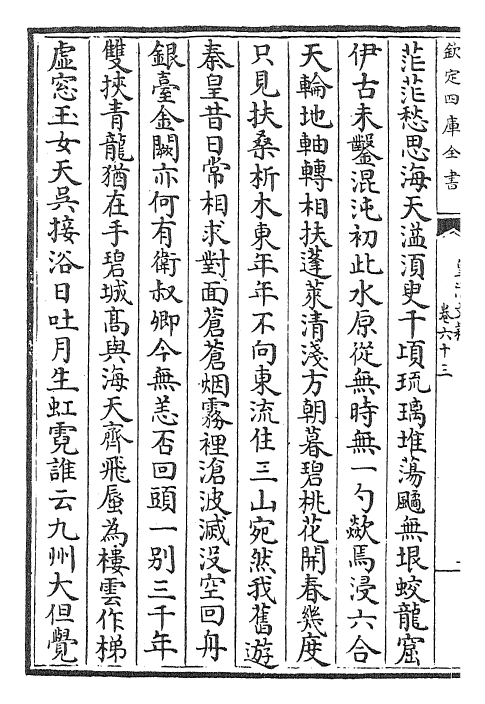 欽定四庫全書
卷六十三
茫茫愁思海天溢湏臾千頃琉璃堆蕩颺無垠蛟龍窟
伊古未鑿混沌初此水原從無時無一勺歘焉浸六合
天輪地軸轉相扶蓬萊清淺方朝暮碧桃花開春幾度
只見扶桑析木東年年不向東流住三山宛然我舊遊
秦皇昔日常相求對面蒼蒼烟霧裡滄波滅没空回舟
銀臺金闕亦何有衛叔卿今無恙否回頭一别三千年
雙挾青龍猶在手碧城髙與海天齊飛蜃為樓雲作梯
虛窓玉女天吳接浴日吐月生虹霓誰云九州大但覺